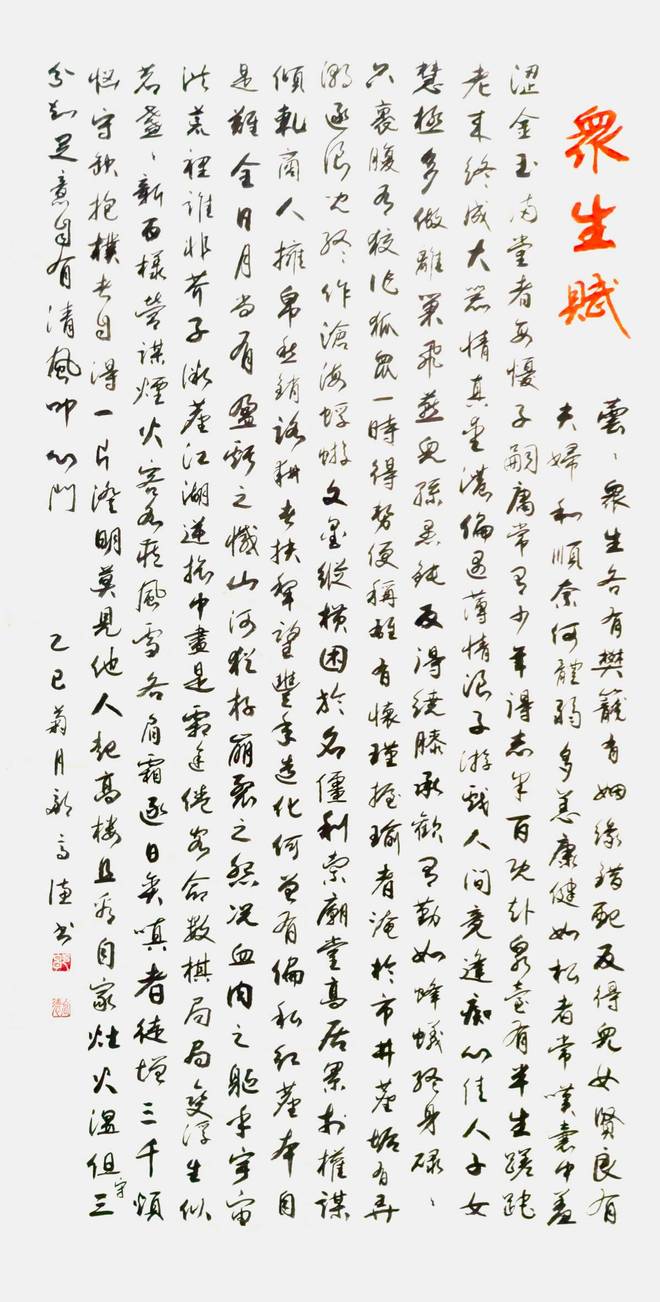 衆生賦
雲、衆生各有樊籠有姻緣錯配反得兒女賢良有
夫婦和順奈何體弱多恙康健如松者常嘆囊中羞
澀金玉滿堂者每憂子嗣庸常有少年得志半百既赴泉臺有半生蹉跎
老來終成大器情真意濃偏遇薄情浪子游戲人間竟逢痴心佳人子女
慧極多做離巢飛燕兒孫愚鈍反得繞膝承歡有勤如蜂蟻終身碌、
只裹腹有狡作狐鼠一時得勢便稱雄有懷瑾握瑜者淹於市井塵垢有弄
潮逐浪終作滄海蜉蝣文墨縱橫困於名僵利索廟堂高居累於權謀
傾軋商人擁帛愁銷路耕者扶犁望豐年造化何曾有偏私紅塵本自
是難全日月尚有盈虧之憾山河猶存崩裂之怨况血肉之軀乎宇宙
洪荒裡誰非芥子微塵江湖逆旅中盡是霜途倦客命數棋局局變浮生似
茗盞、新百樣營謀煙火客風雪各肩霜逐日奔嗔者徒增三千煩
惱守缺抱樸者自得一片澄明莫見他人起高樓且看自家灶火溫但守三
分知足意自有清風叩心門
乙巳菊月